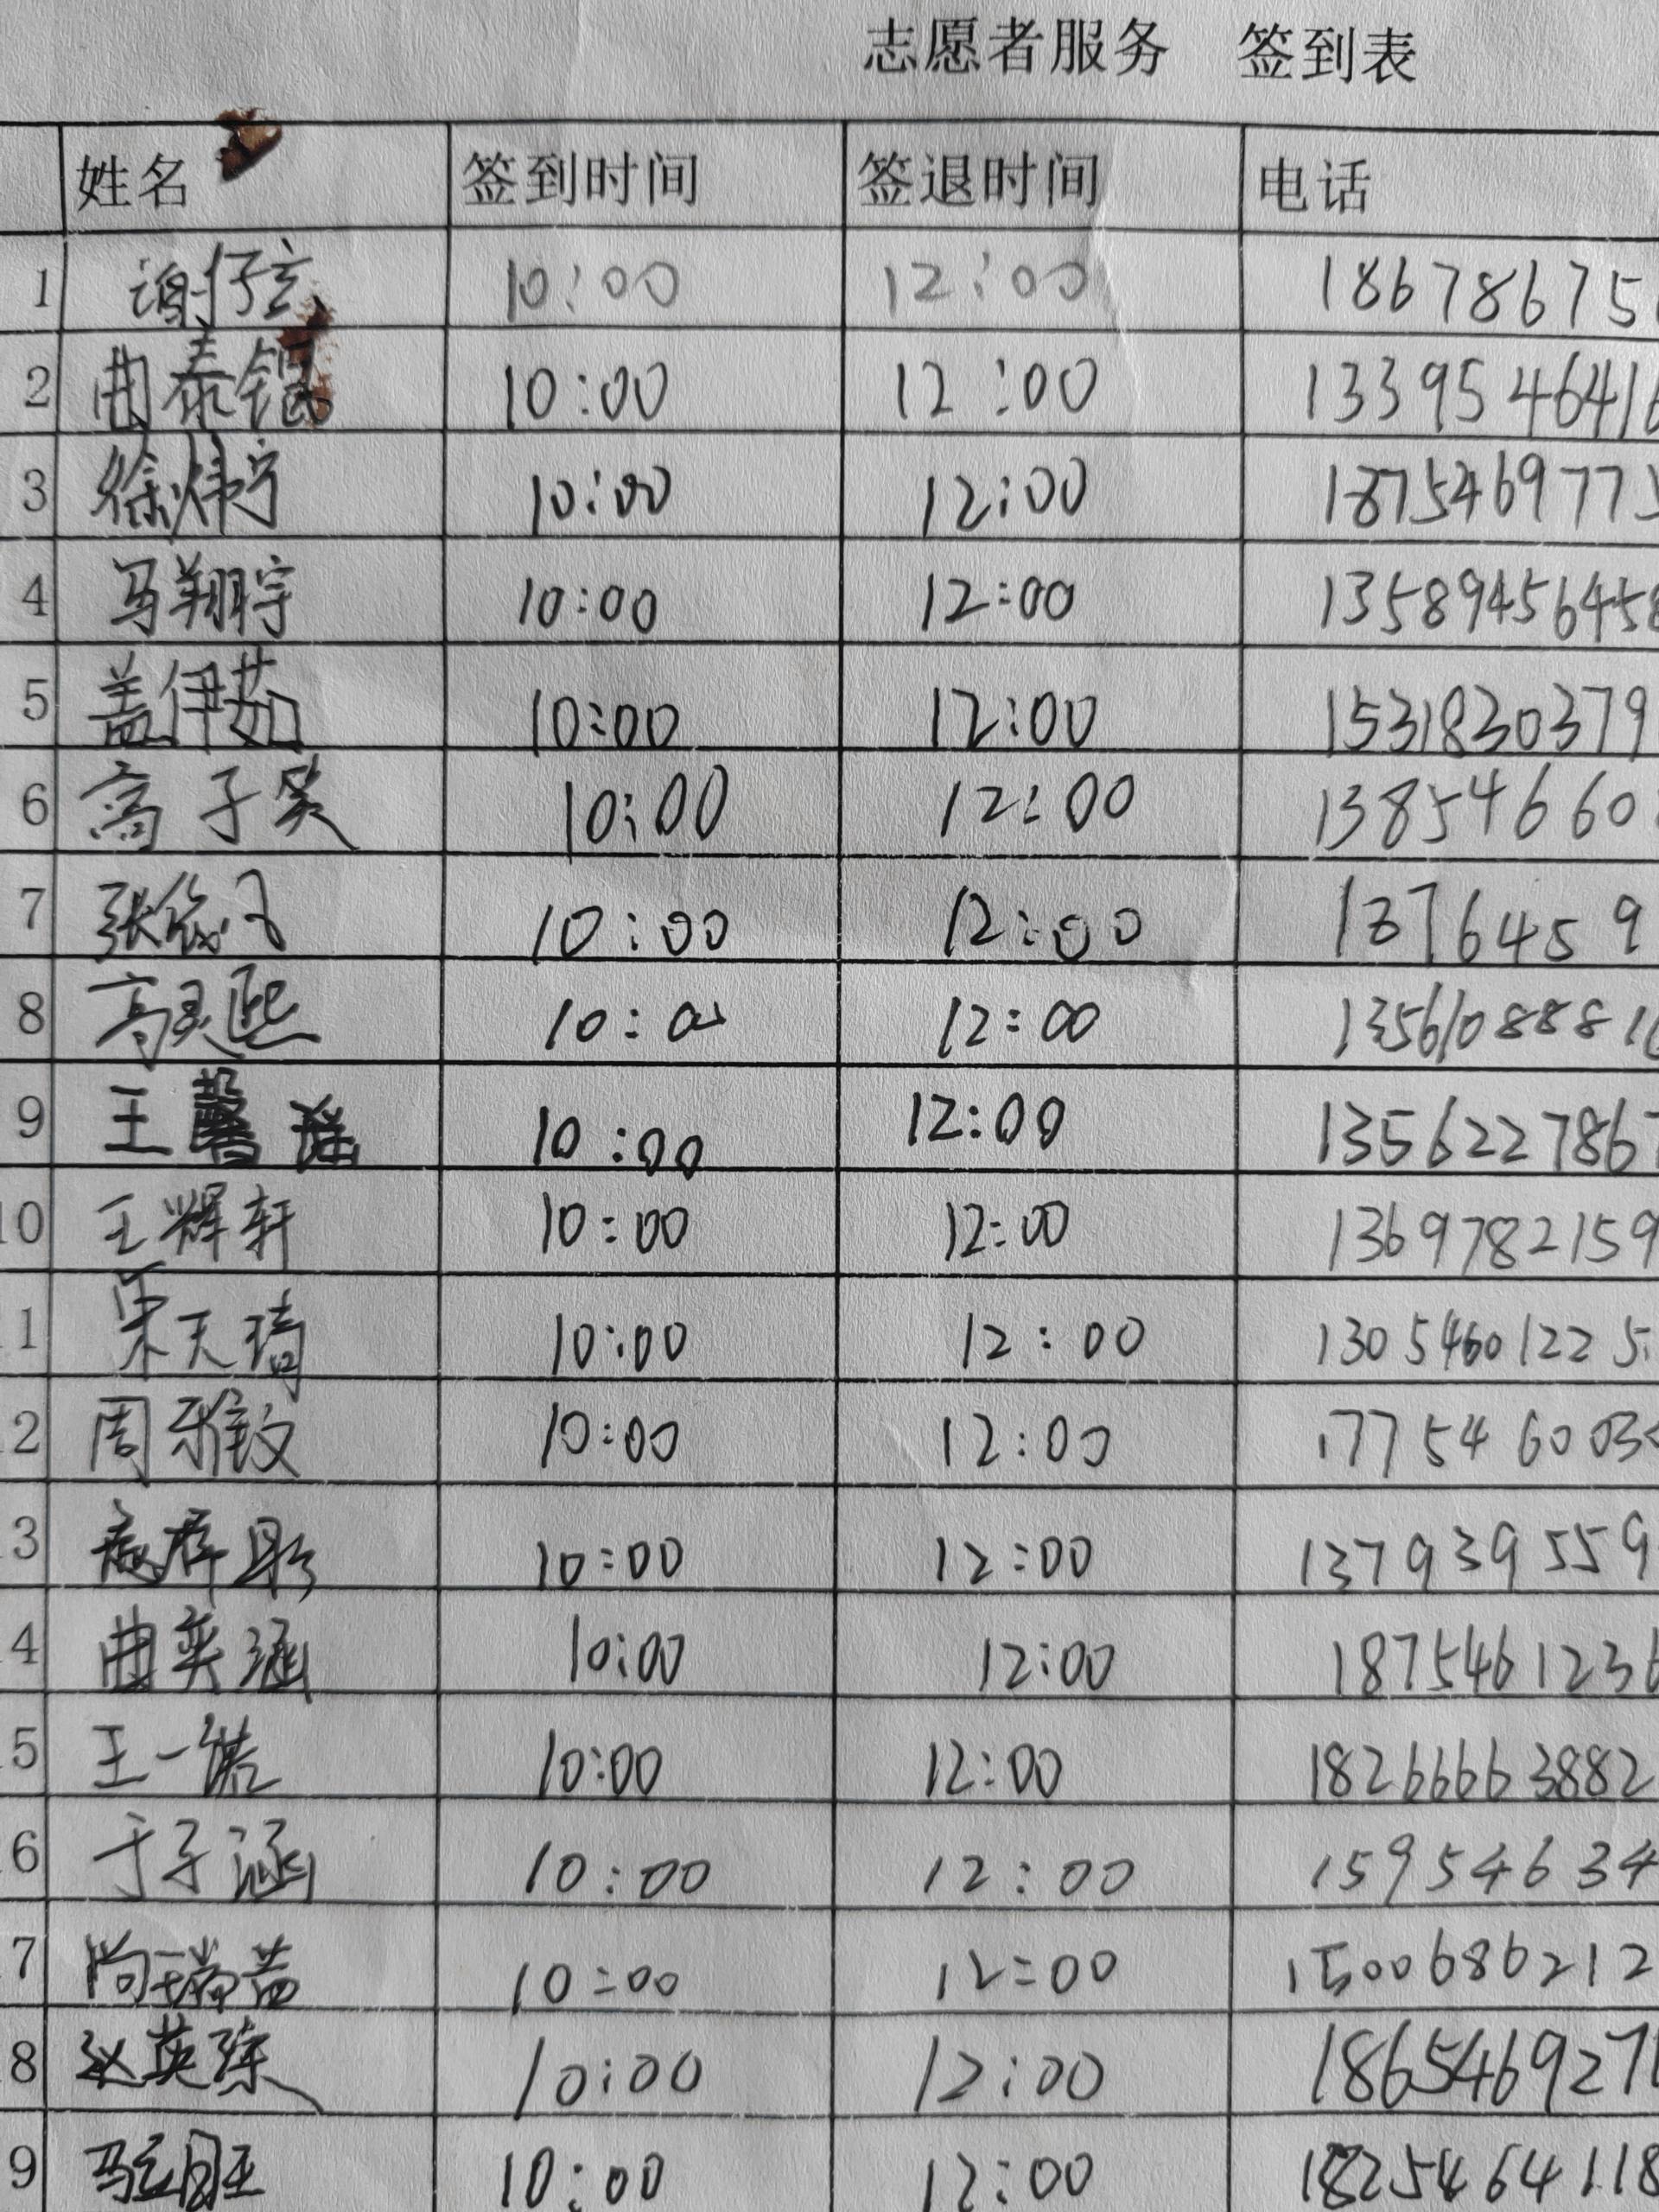 志愿者服务 签到表
姓名 签到时间 签退时间 电话
1 谢仔玄 10:00 12:00 18678675
2 曲泰 10:00 12:00 1339546416
3 徐炜宁 10:00 12:00 1875469775
4 马翔宇 10:00 12:00 13589456458
5 盖伊茹 10:00 12:00 1531830379
6 高子笑 10:00 12:00 138546660
7 张 10:00 12:00 1376459
8 高灵熙 10:00 12:00 1356108881
9 王馨瑶 10:00 12:00 1356227867
10 王辉轩 10:00 12:00 1369782159
1 宋天琦 10:00 12:00 13054601225
2 周雅 10:00 12:00 177546003
3 10:00 12:00 137939559
4 曲奕涵 10:00 12:00 1875461236
5 王一诺 10:00 12:00 18266663882
6 于子涵 10:00 12:00 15954634
7 尚瑞 10:00 12:00 1500686212
8 赵英 10:00 12:00 186546927
9 马 10:00 12:00 1825464118